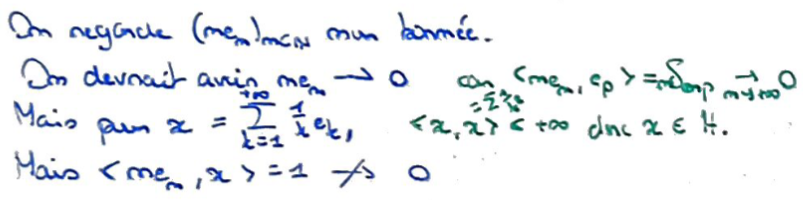 On regarde (ne_n)_{n∈ℕ} non bornée.
On devrait avoir ne_n → 0 car <ne_n, e_p> = nδ_{n,p} →_{n→+∞} 0
Mais pour x = \sum_{k=1}^{+∞} \frac{1}{k} e_k, <x, x> < +∞ donc x ∈ H.
Mais <ne_n, x> = 1 ↛ 0